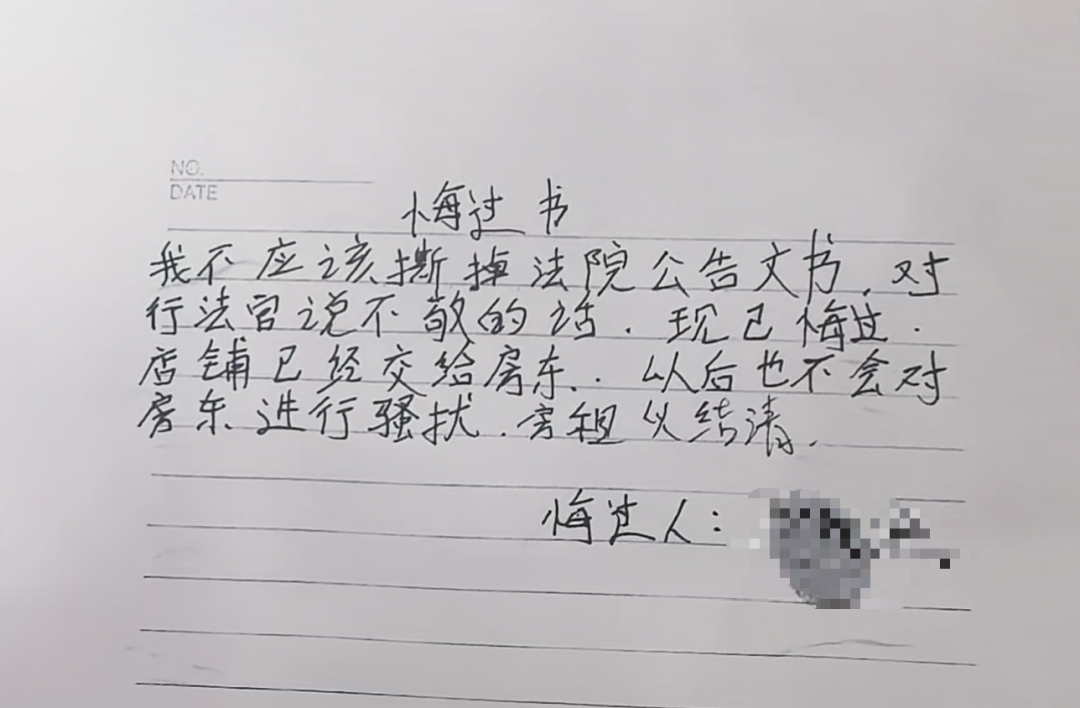 NO.
DATE
悔过书
我不应该撕掉法院公告文书，对
行法官说不敬的话．现已悔过．
店铺已经交给房东．．以后也不会对
房东进行骚扰．房租以结清．
悔过人：